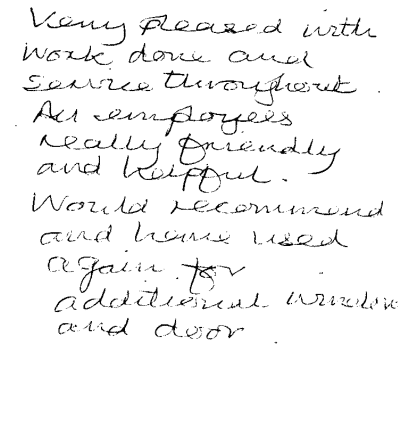 Very pleased with
work done and
service throughout.
All employees
really friendly
and helpful.
Would recommend
and have used
again for
additional window
and door.